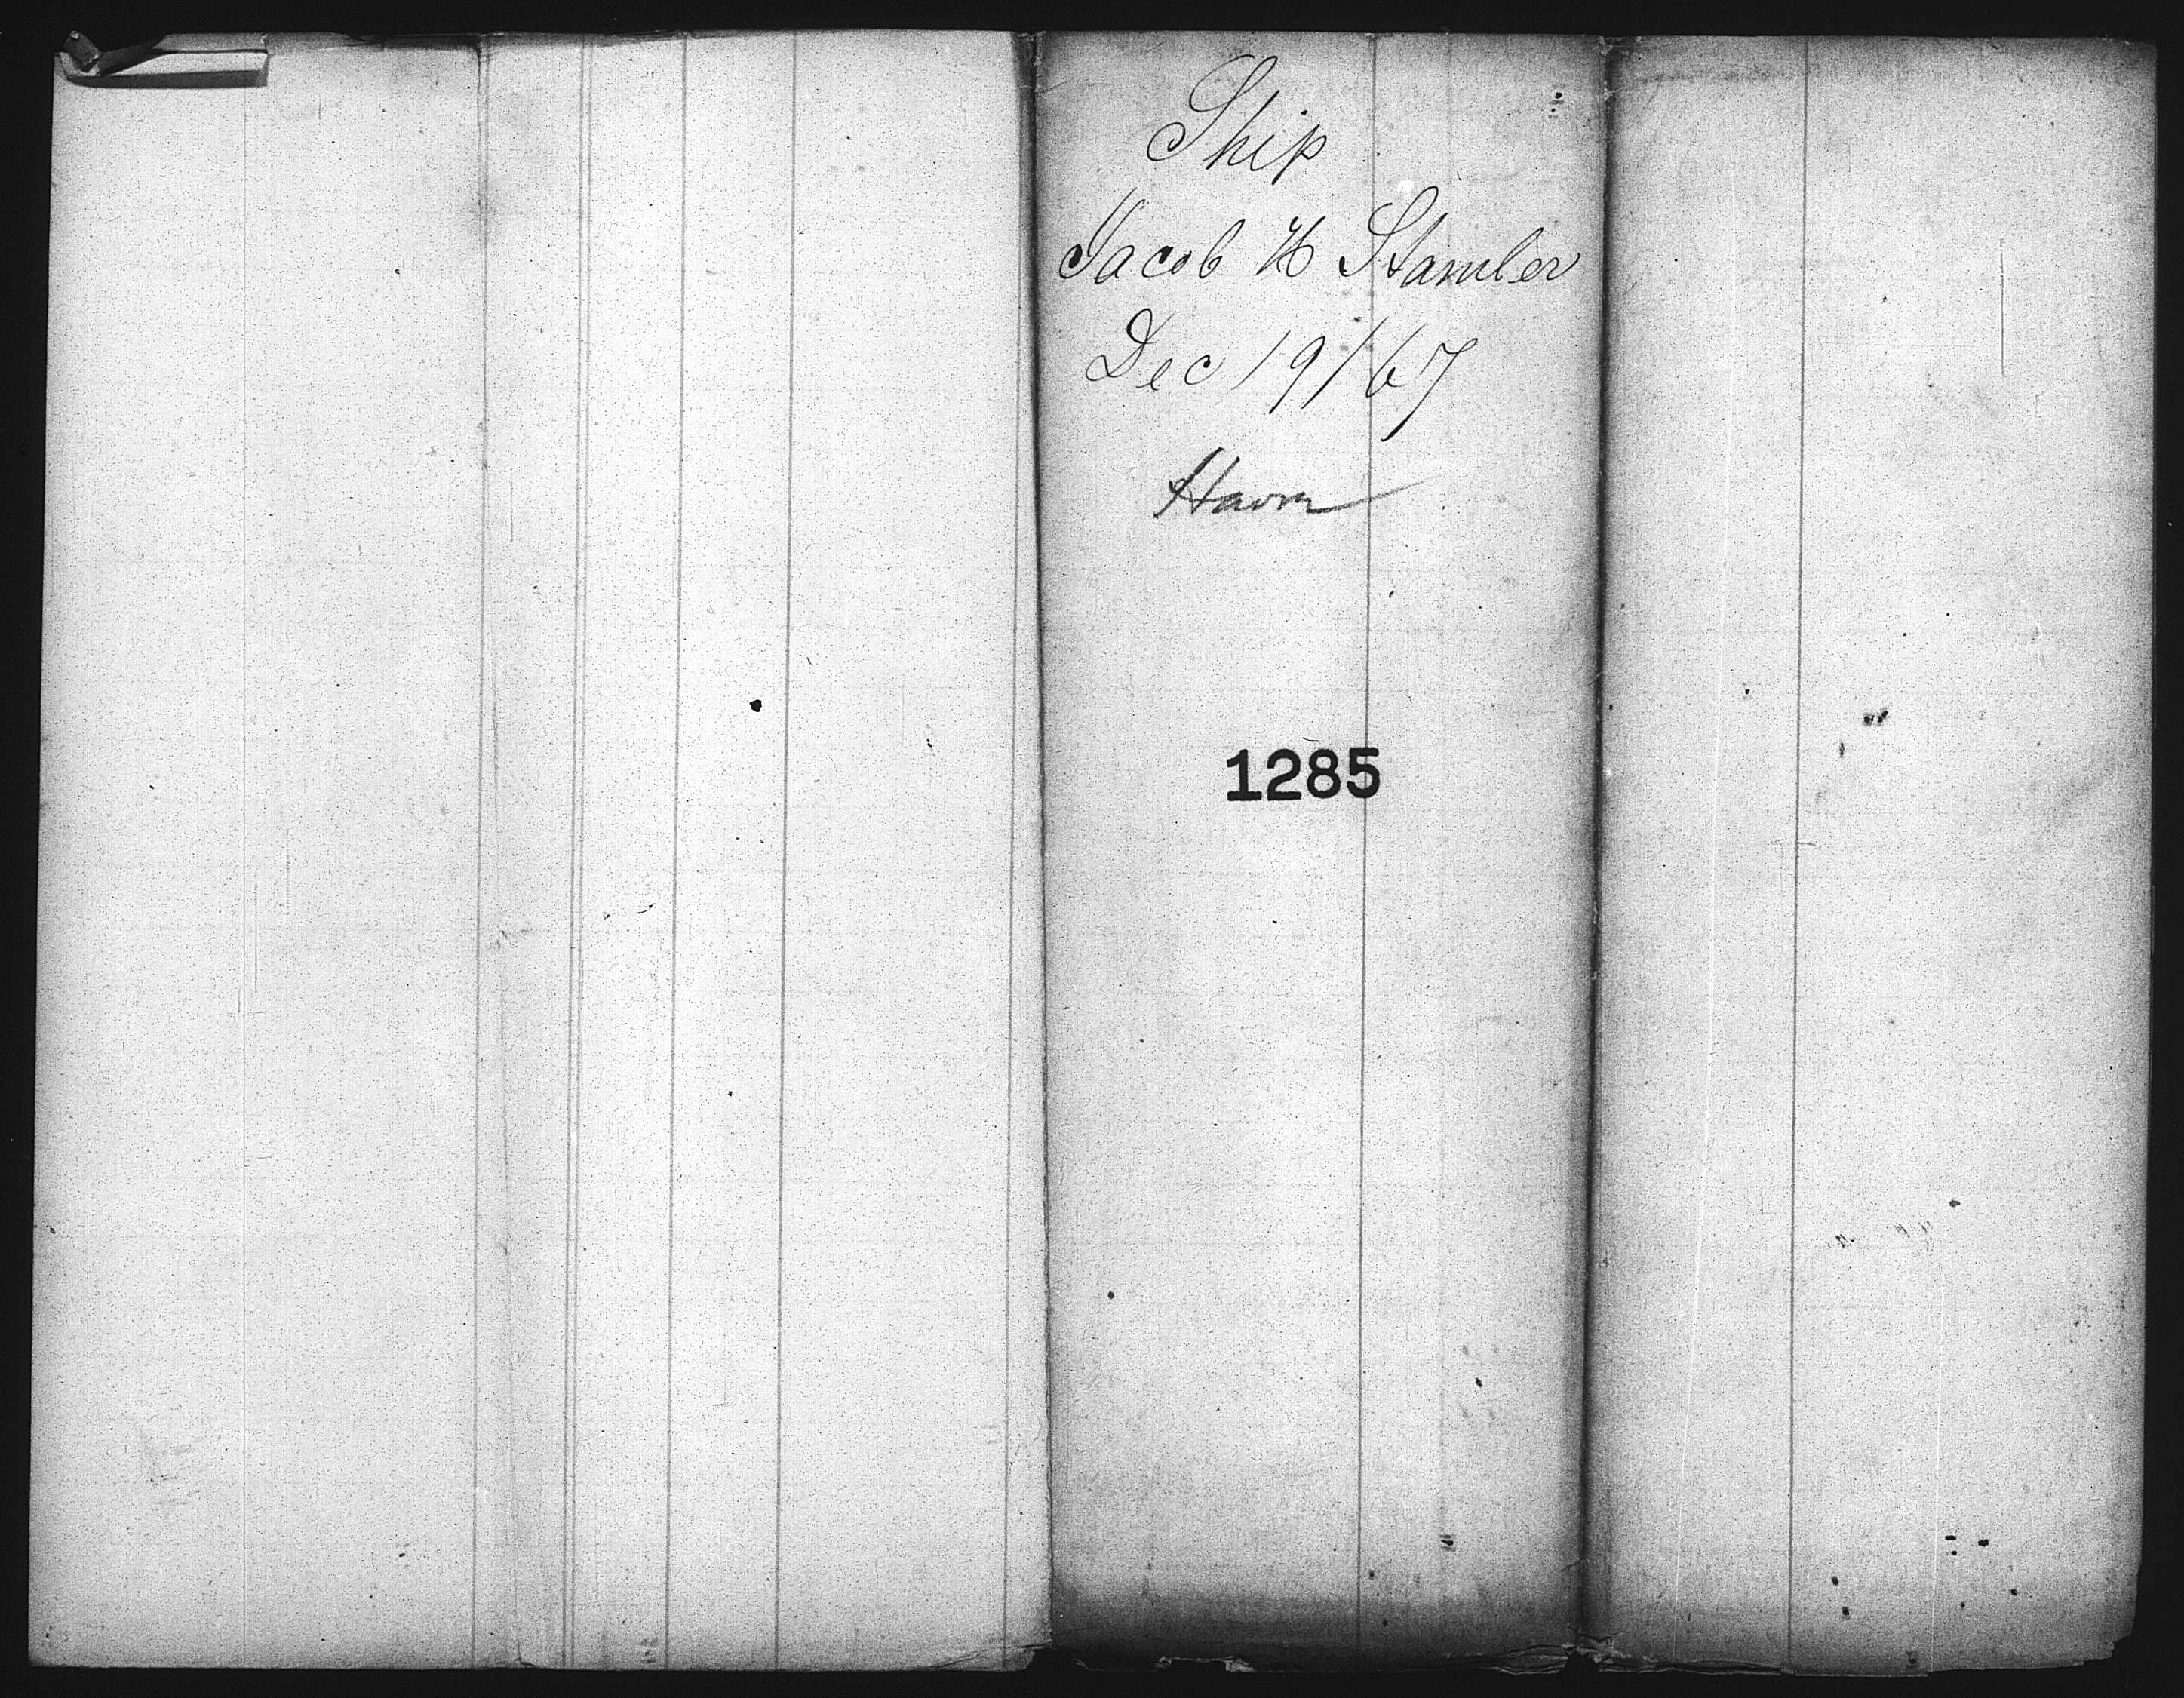 Ship
Jacob H Stamler
Dec 19/67
Havre
1285